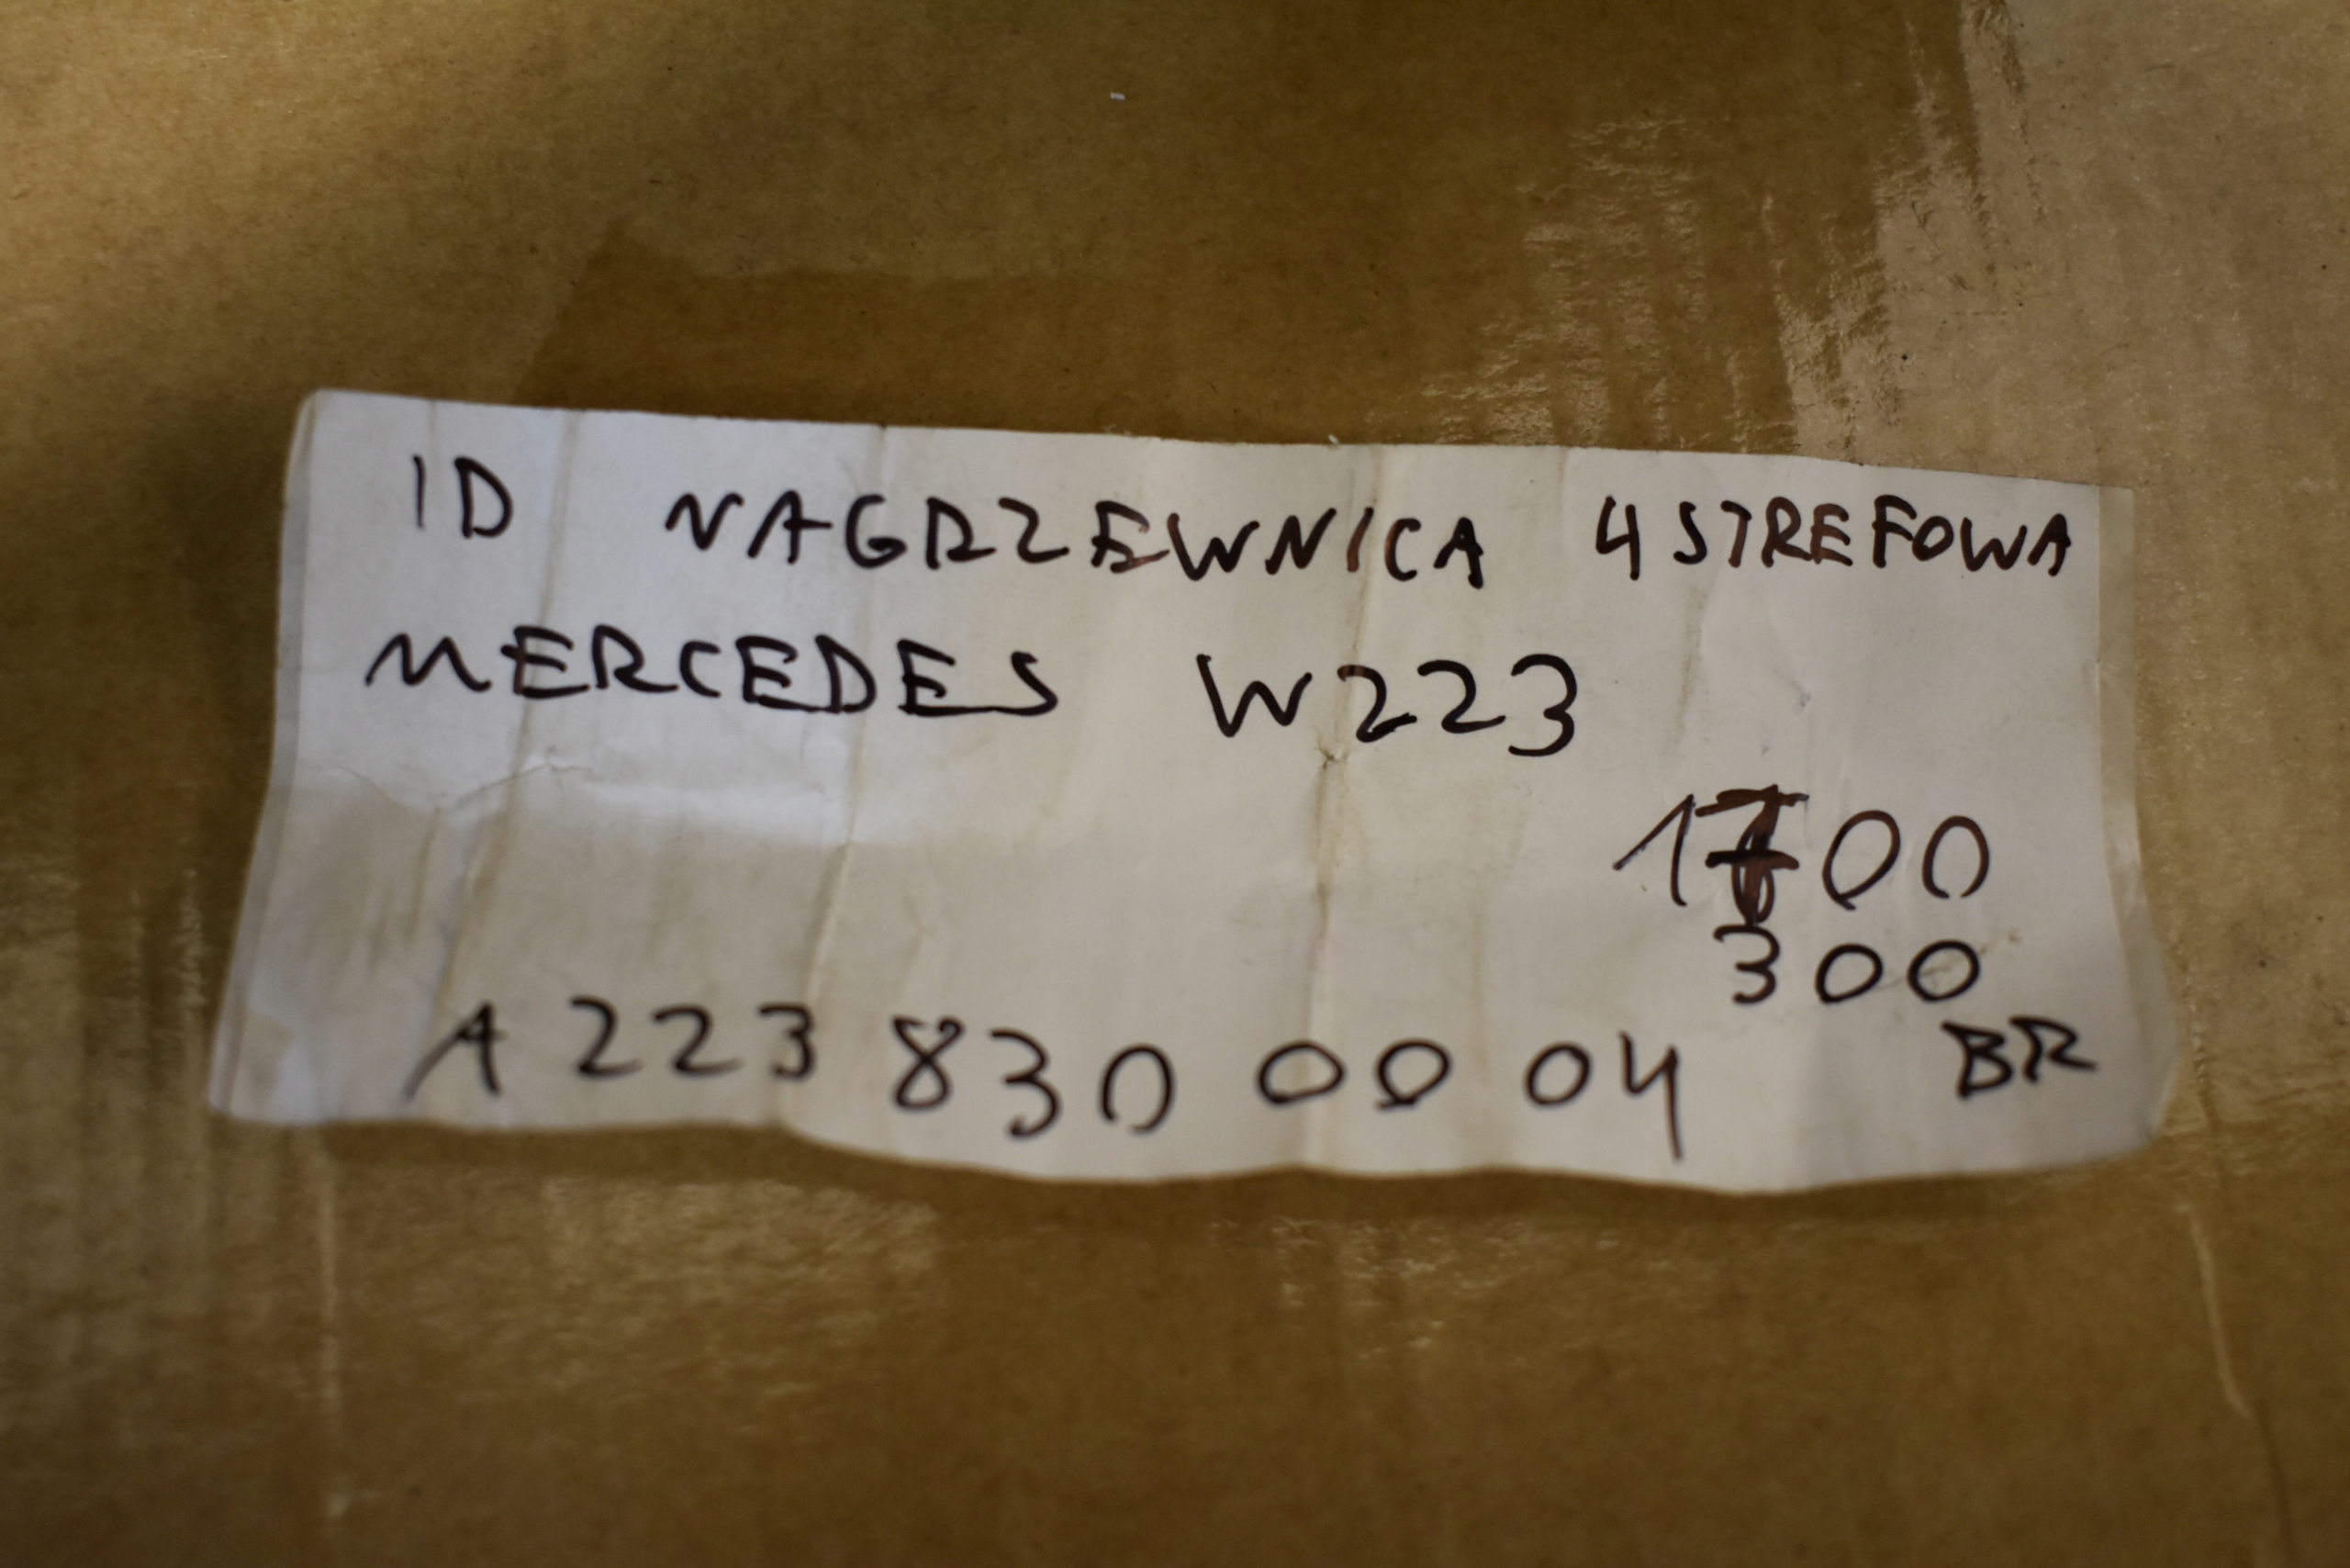 ID NAGRZEWNICA 4 STREFOWA
MERCEDES W223
1700
300
A 223 830 00 04 BR